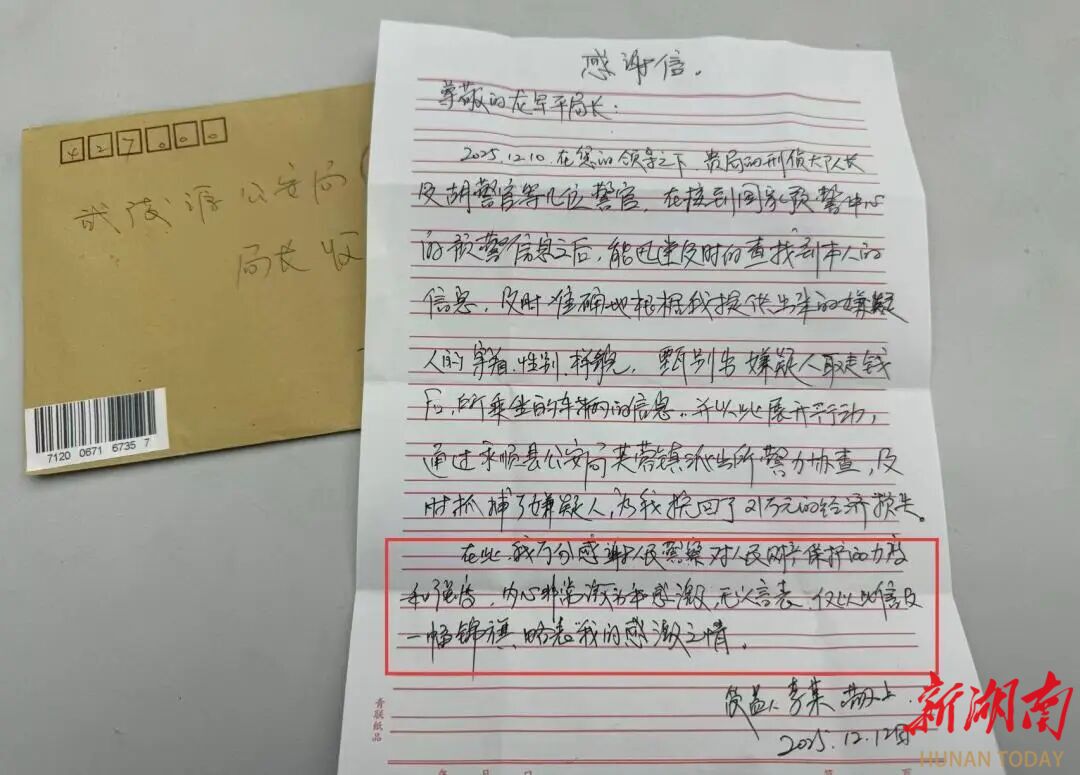 427000
武陵源公安局
局长收
7120 0671 6735 7
感谢信.
尊敬的龙军平局长:
2025.12.10.在您的领导之下,贵局的刑侦大队长
及胡警官等几位警官,在接到国家预警中心
的预警信息之后,能迅速及时的查找到本人的
信息,及时准确地根据我提供出来的嫌疑
人的穿着.性别.样貌,甄别出嫌疑人取走钱
后,所乘坐的车辆的信息.并以此展开行动,
通过永顺县公安局芙蓉镇派出所警力协查,及
时抓捕了嫌疑人,为我挽回了21万元的经济损失。
在此,我万分感谢人民警察对人民财产保护的力度
和强度,内心非常激动和感激,无以言表,仅以此信及
一幅锦旗略表我的感激之情。
受益人 李某 敬上
2025.12.12日
青联纸品
年 月 日 第 页
新湖南
HUNAN TODAY